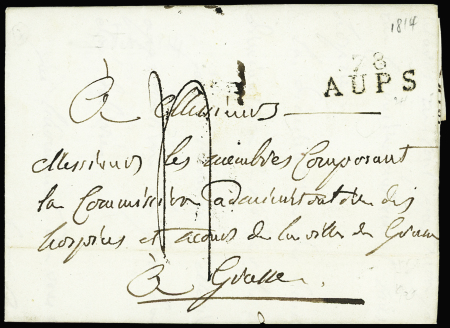 1814
78
AUPS
À Messieurs
Messieurs les membres Composant
la Commission administrative des
hospices et secours de la ville de Grasse
À Grasse.